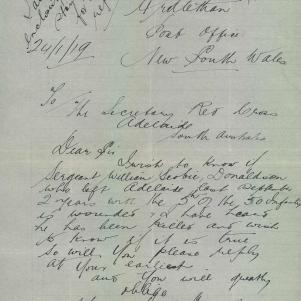 Ardlethan
Post Office
24/1/19
New South Wales
To
The Secretary Red Cross
Adelaide
South Australia
Dear Sir
I wish to know if
Sergeant William Scobie Donaldson
who left Adelaide last September
2 years with the 5th of the 50 Infantry
is wounded I have heard
he has been killed and wish
to know if it is true
so will you please reply
at your earliest
and you will greatly
oblige